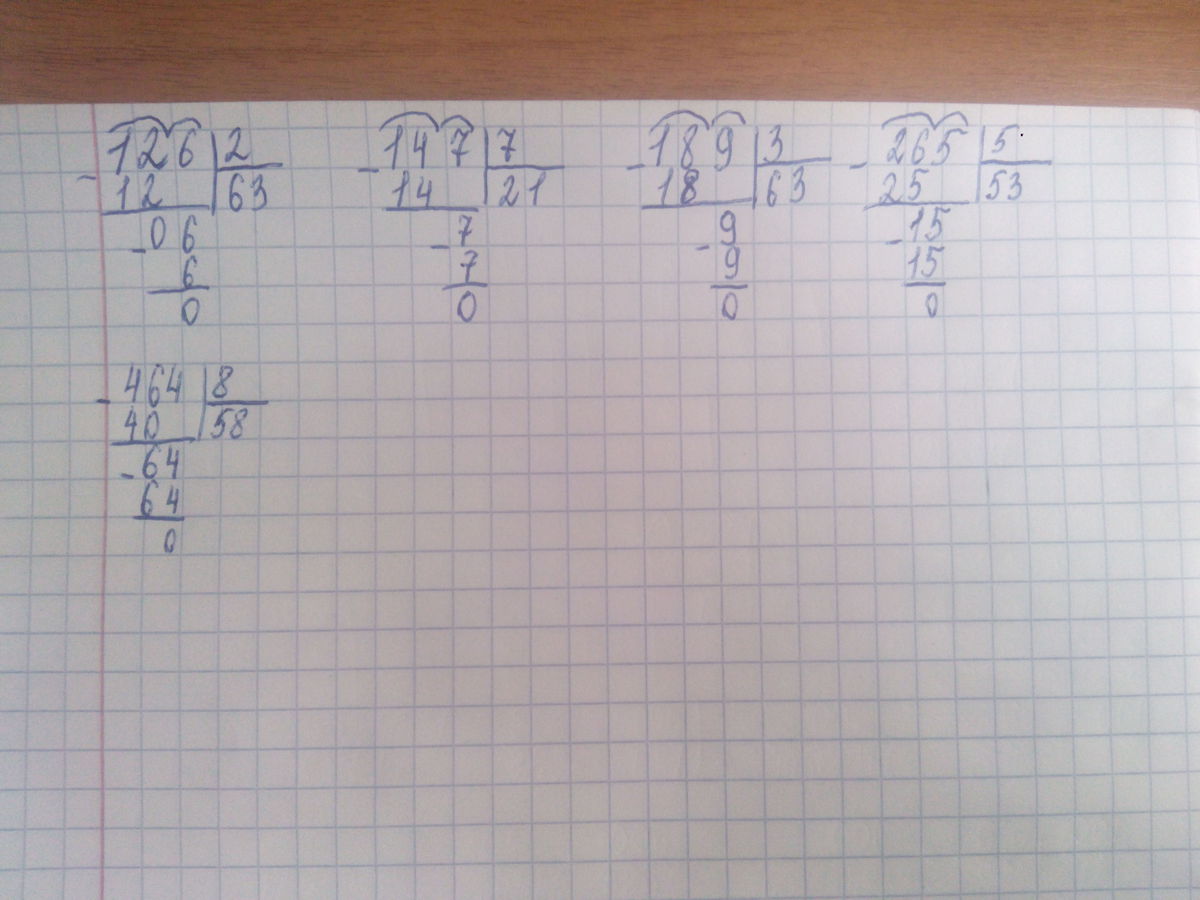 126 2 147 7 189 3 265 5
- 12 63 - 14 21 - 18 63 - 25 53
- 06 - 7 - 9 - 15
6 7 9 15
0 0 0 0
- 464 8
40 58
- 64
64
0